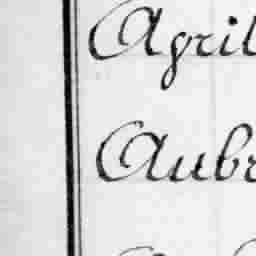 Agril
Aubr